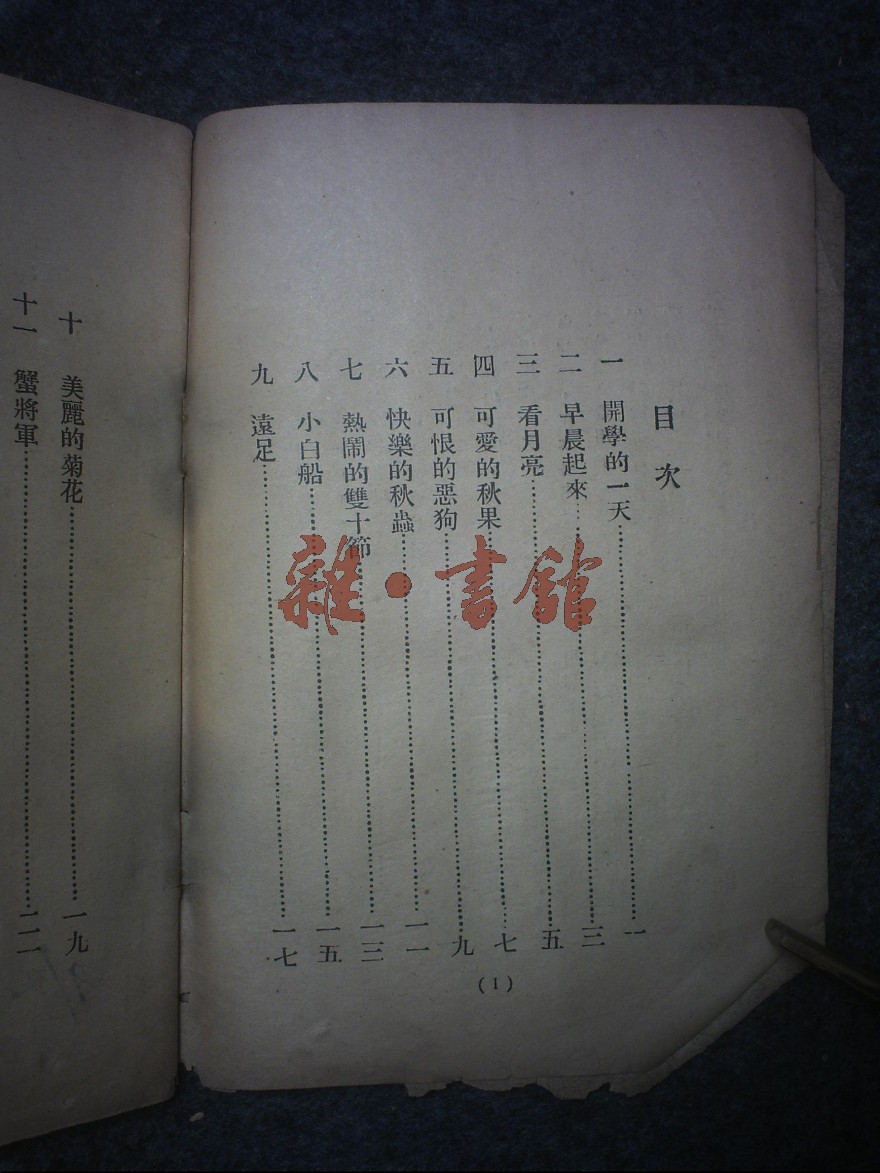 目次
一 開學的一天……一
二 早晨起來……三
三 看月亮……五
四 可愛的秋果……七
五 可恨的惡狗……九
六 快樂的秋蟲……一一
七 熱鬧的雙十節……一三
八 小白船……一五
九 遠足……一七
(1)
十 美麗的菊花……一九
十一 蟹將軍……二一
雜·書館